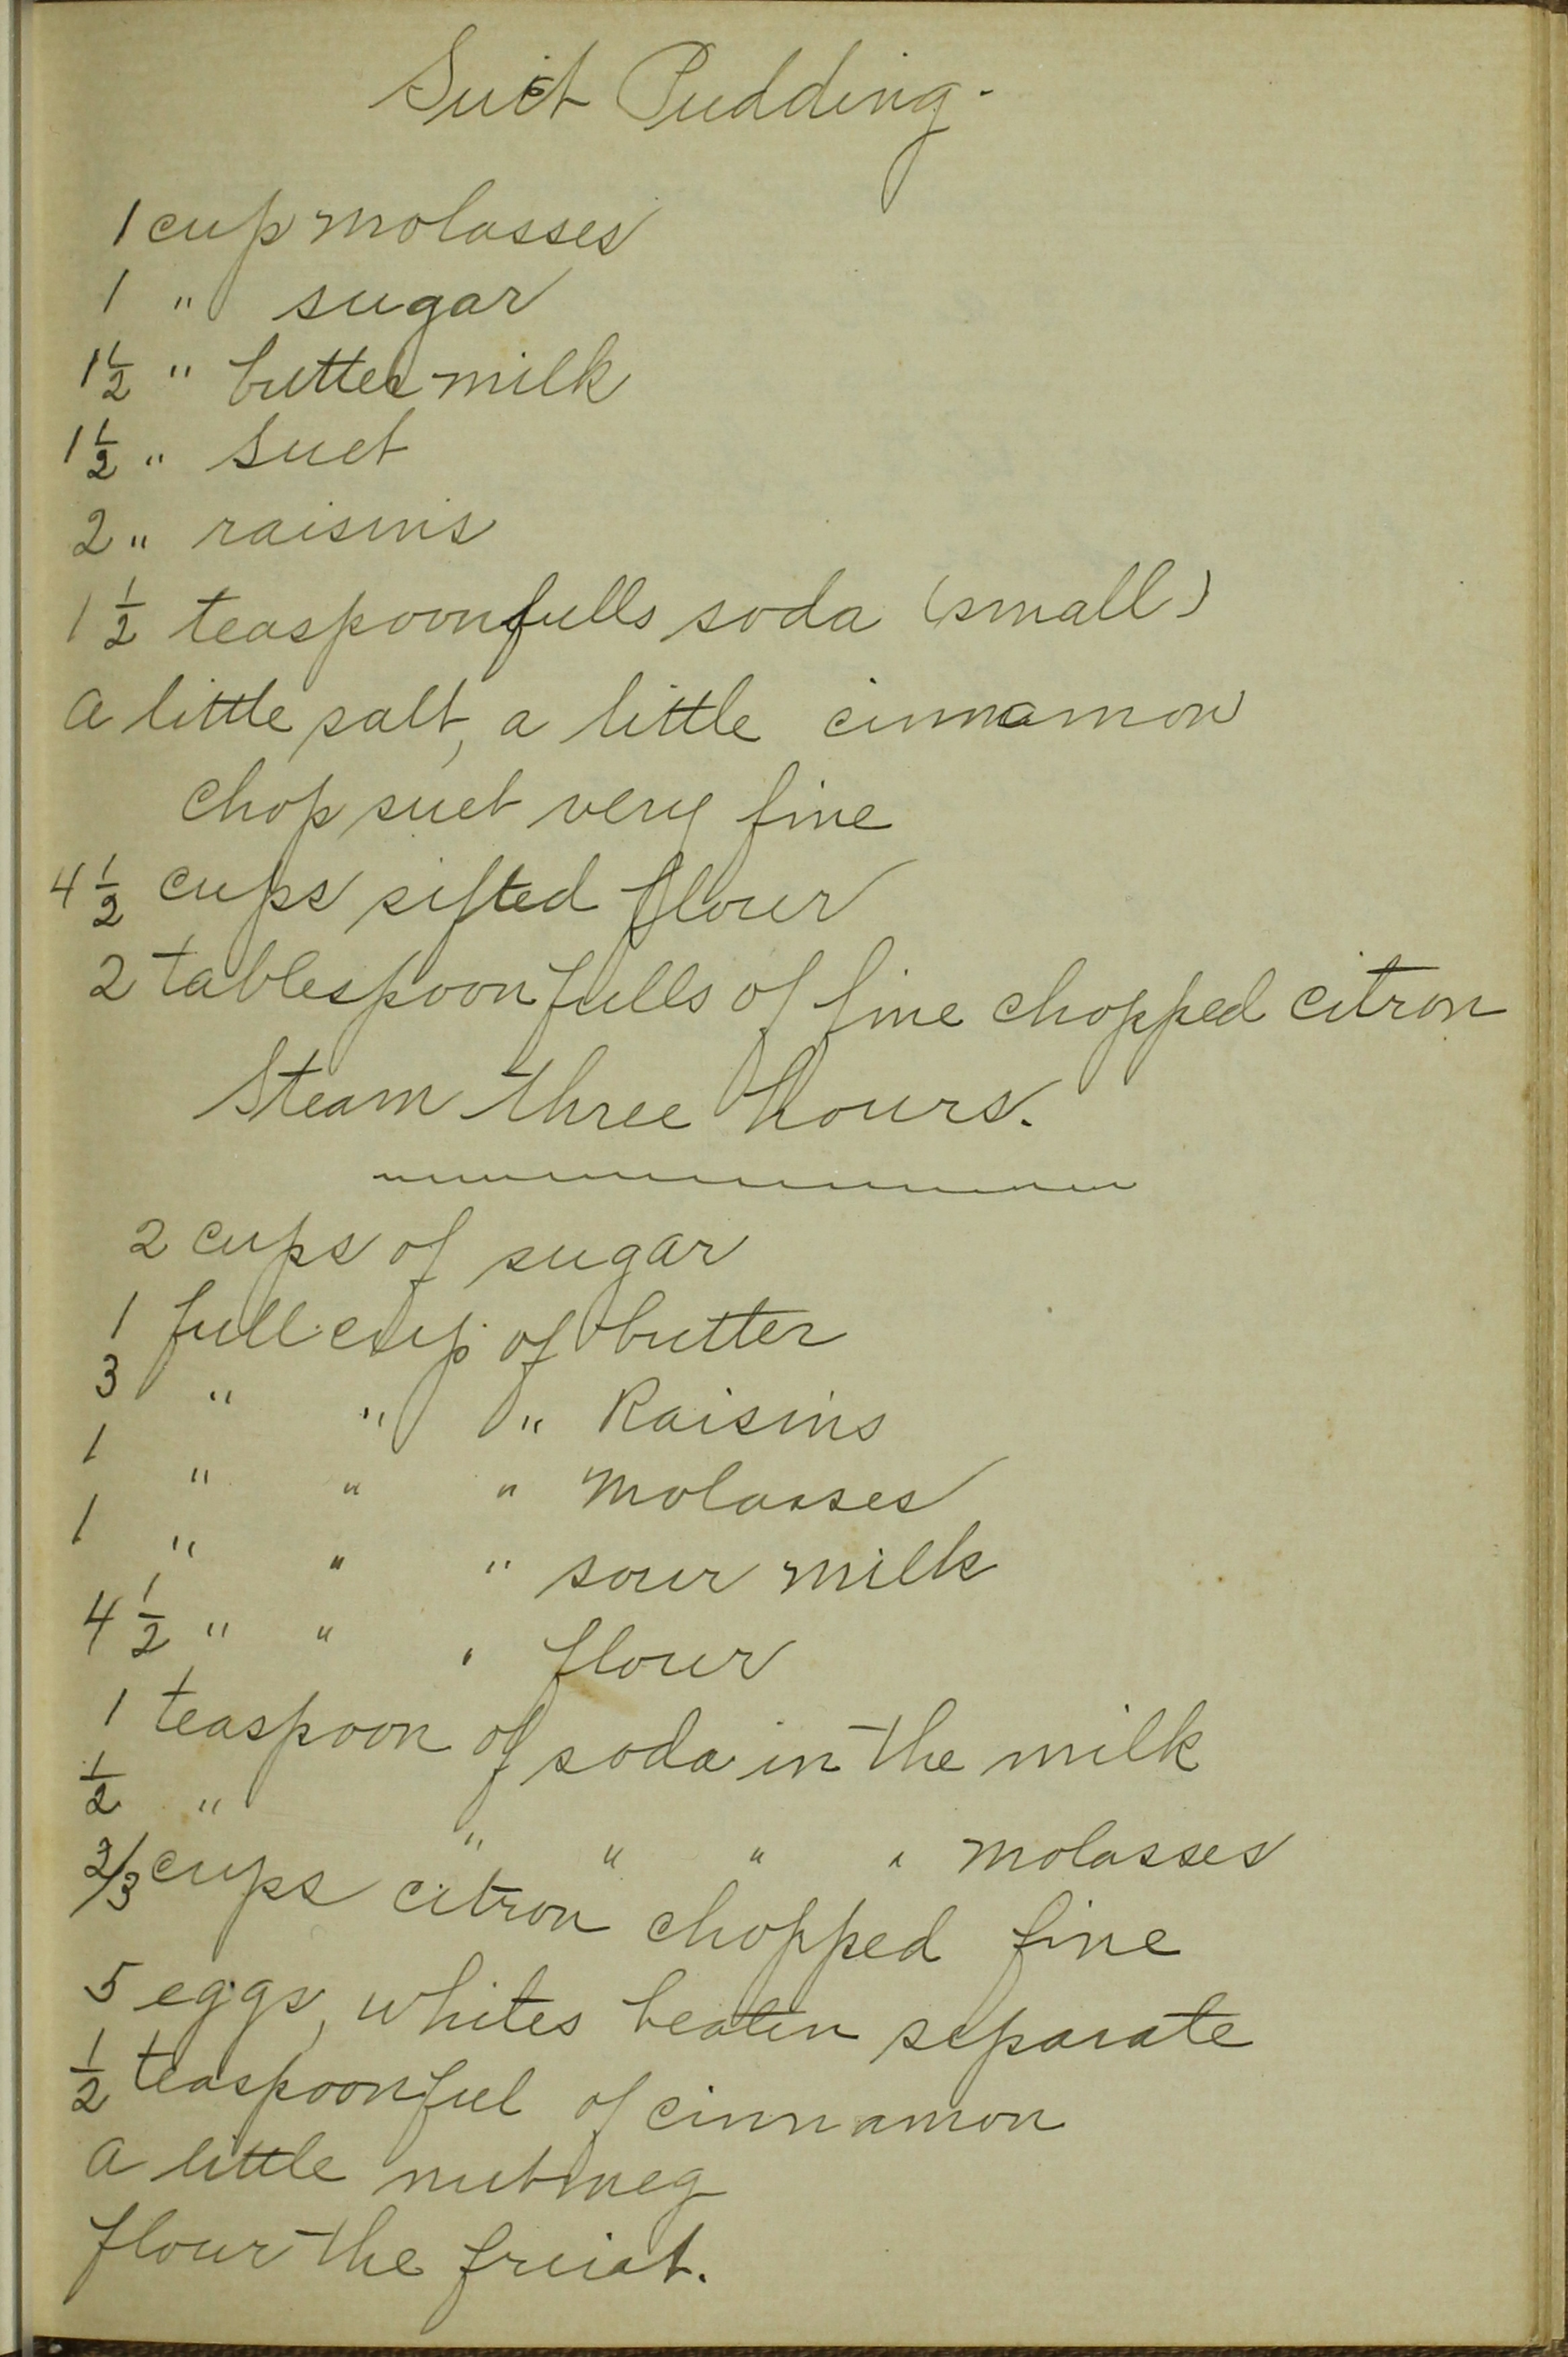 Suet Pudding.
1 cup molasses
1 " sugar
1 1/2 " butter milk
1 1/2 " suet
2 " raisins
1 1/2 teaspoonfulls soda (small)
a little salt, a little cinnamon
chop suet very fine
4 1/2 cups sifted flour
2 tablespoonfulls of fine chopped citron
Steam three hours.
2 cups of sugar
1 full cup of butter
3 " " " Raisins
1 " " " Molasses
1 " " " sour milk
4 1/2 " " " flour
1 teaspoon of soda in the milk
1/2 " " " " " molasses
2/3 cups citron chopped fine
5 eggs, whites beaten separate
1/2 teaspoonful of cinnamon
a little nutmeg
flour the fruit.